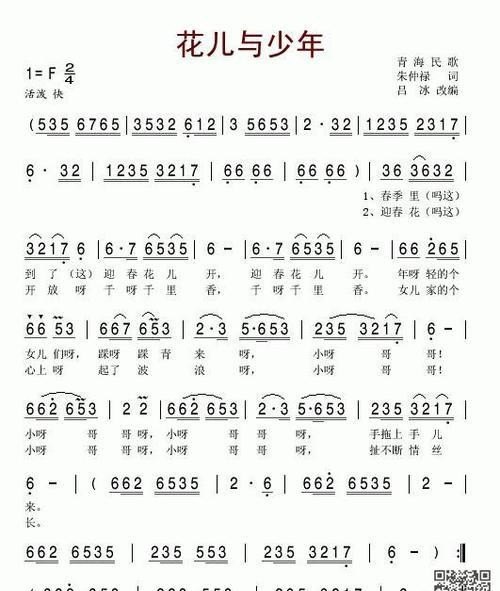 花儿与少年
1= F 2/4
活泼 快
青 海 民 歌
朱仲禄 词
吕 冰 改编
( 535 6765 | 3532 612 | 3 5653 | 2· 32 | 1235 2317 |
6· 32 | 1235 3217 | 66 66 | 66 66 ) | 36 3632 |
1、春季 里（吗这）
2、迎春 花（吗这）
3217 6 | 6·7 6535 | 6·7 6535 | 6 – | 66 265 |
到了（这）迎 春 花 儿 开， 迎 春 花 儿 开。 年呀 轻的个
开 放 呀 千 呀 千 里 香， 千 呀 千 里 香。 女儿 家的个
66 53 | 667 653 | 2·3 5·653 | 235 3217 |
女儿 们呀，踩呀 踩 青 来 呀， 小呀 哥 哥！
心上 呀 起了 波 浪 呀， 小呀 哥 哥！
662 653 | 2 2 | 662 653 | 2·3 5·653 | 235 3217 |
小呀 哥 哥 哥呀，小呀 哥 哥呀， 手拖上 手 儿
小呀 哥 哥 哥呀，小呀 哥 哥呀， 扯不断 情 丝
6 – | 2· ( 6 | 662 6535 | 662 6535 | 2· 6 |
来。
长。
662 6535 | 662 6535 | 2235 3217 | 6 – ) :||